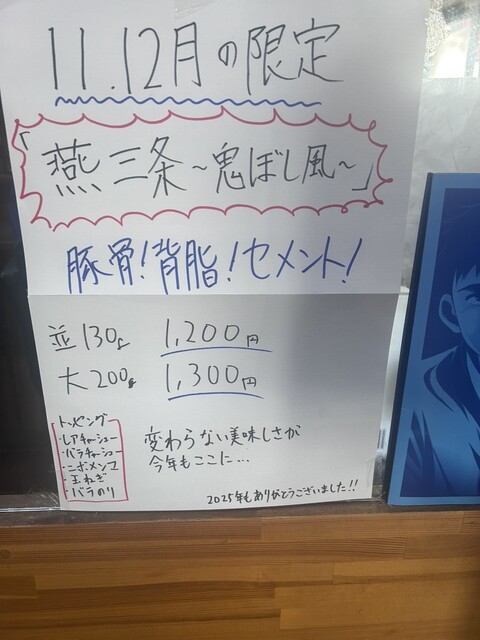 11.12月の限定
「燕三条~鬼ぼし風~」
豚骨!背脂!セメント!
並130g 1,200円
大200g 1,300円
トッピング
・レアチャーシュー
・バラチャーシュー
・ニボメンマ
・玉ねぎ
・バラのり
変わらない美味しさが
今年もここに...
2025年もありがとうございました!!